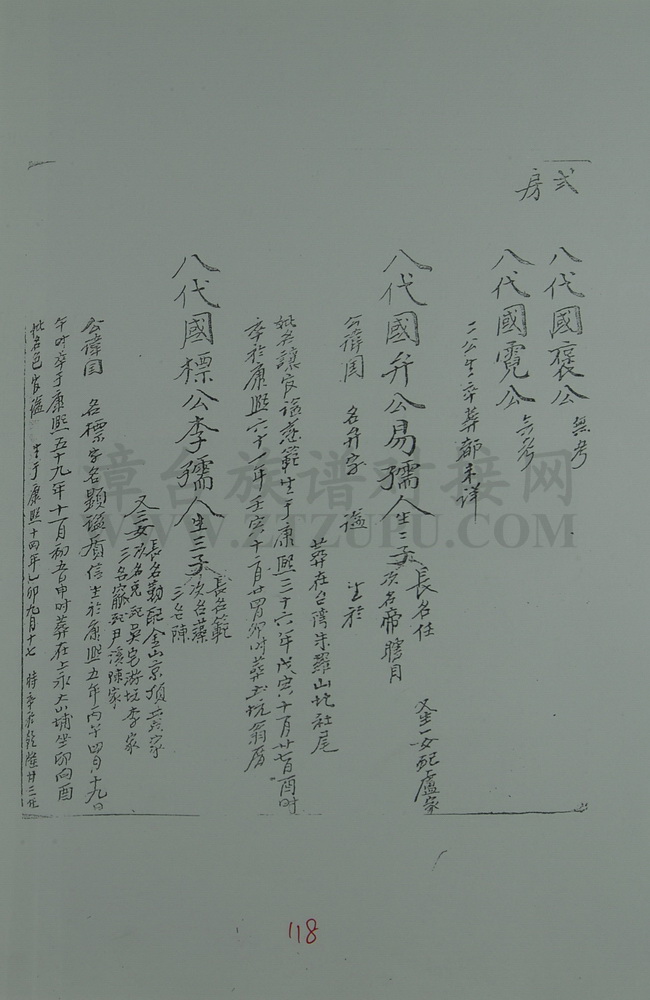 弍房
八代國襃公 無考
八代國霓公 無考
二公生卒葬都未詳
八代國弁公易孺人生二子 長名任
次名帝 瞎目
又生一女配盧家
公諱國 名弁字 謚 生於
葬在台湾朱羅山坑社尾
妣名讓官謚慈範生于康熙三十六年戊寅十一月廿七日酉时
卒於康熙六十一年壬寅十一月廿四日夘时葬土坑翁厝
八代國標公李孺人生三子 長名範
次名藻
三名陳
又三女 長名勤配金山京頂黃家
次名兒配吳宅游坑李家
三名寵配月溪陳家
公諱国 名標字名顯謚質信生於康熙五年丙午四月十九日
午时卒于康熙五十九年十一月初五日申时葬在上永大埔坐卯向酉
妣名邑官謚 生于康熙十四年乙卯九月十七
章台族谱对接网
WWW.ZTZUPU.COM
118